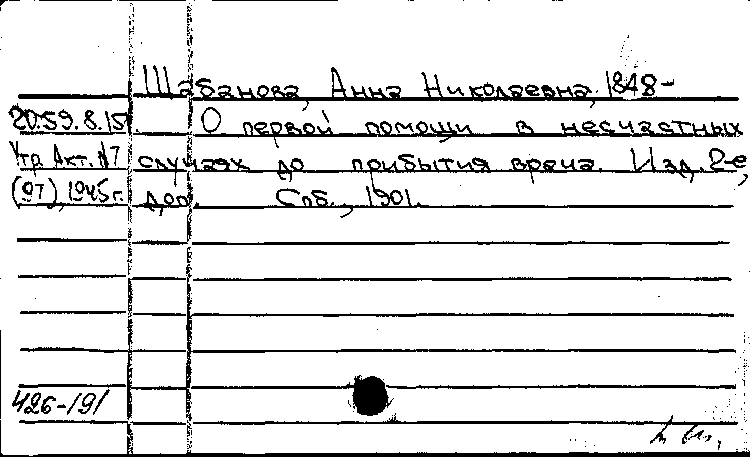 Шабанова, Анна Николаевна, 1848-
20.59.8.15 О первой помощи в несчастных
Утр. Акт. №7 случаях до прибытия врача. Изд. 2-е,
1945г. доп. Спб., 1901.
426-191